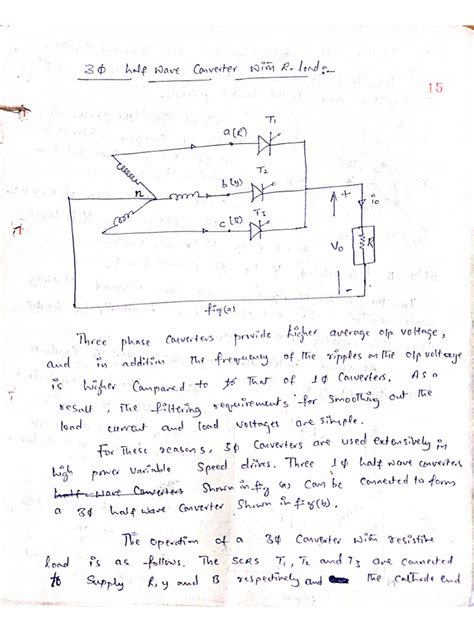 3ϕ half wave Converter with R-load:-
15
T1
a(R)
T2
b(y)
n
T3
c(B)
+
io
Vo
R
-
fig(a)
Three phase Converters provide higher average o/p voltage,
and in addition the frequency of the ripples on the o/p voltage
is higher Compared to that of 1ϕ Converters. As a
result, The filtering requirements for smoothing out the
load current and load voltages are simple.
For these reasons, 3ϕ Converters are used extensively in
high power variable speed drives. Three 1ϕ half wave converters
half-wave Converters Shown in fig (a) Can be Connected to form
a 3ϕ half wave Converter Shown in fig(b).
The operation of a 3ϕ Converter with resistive
load is as follows. The SCRS T1, T2 and T3 are connected
to Supply R, y and B respectively and the cathode end